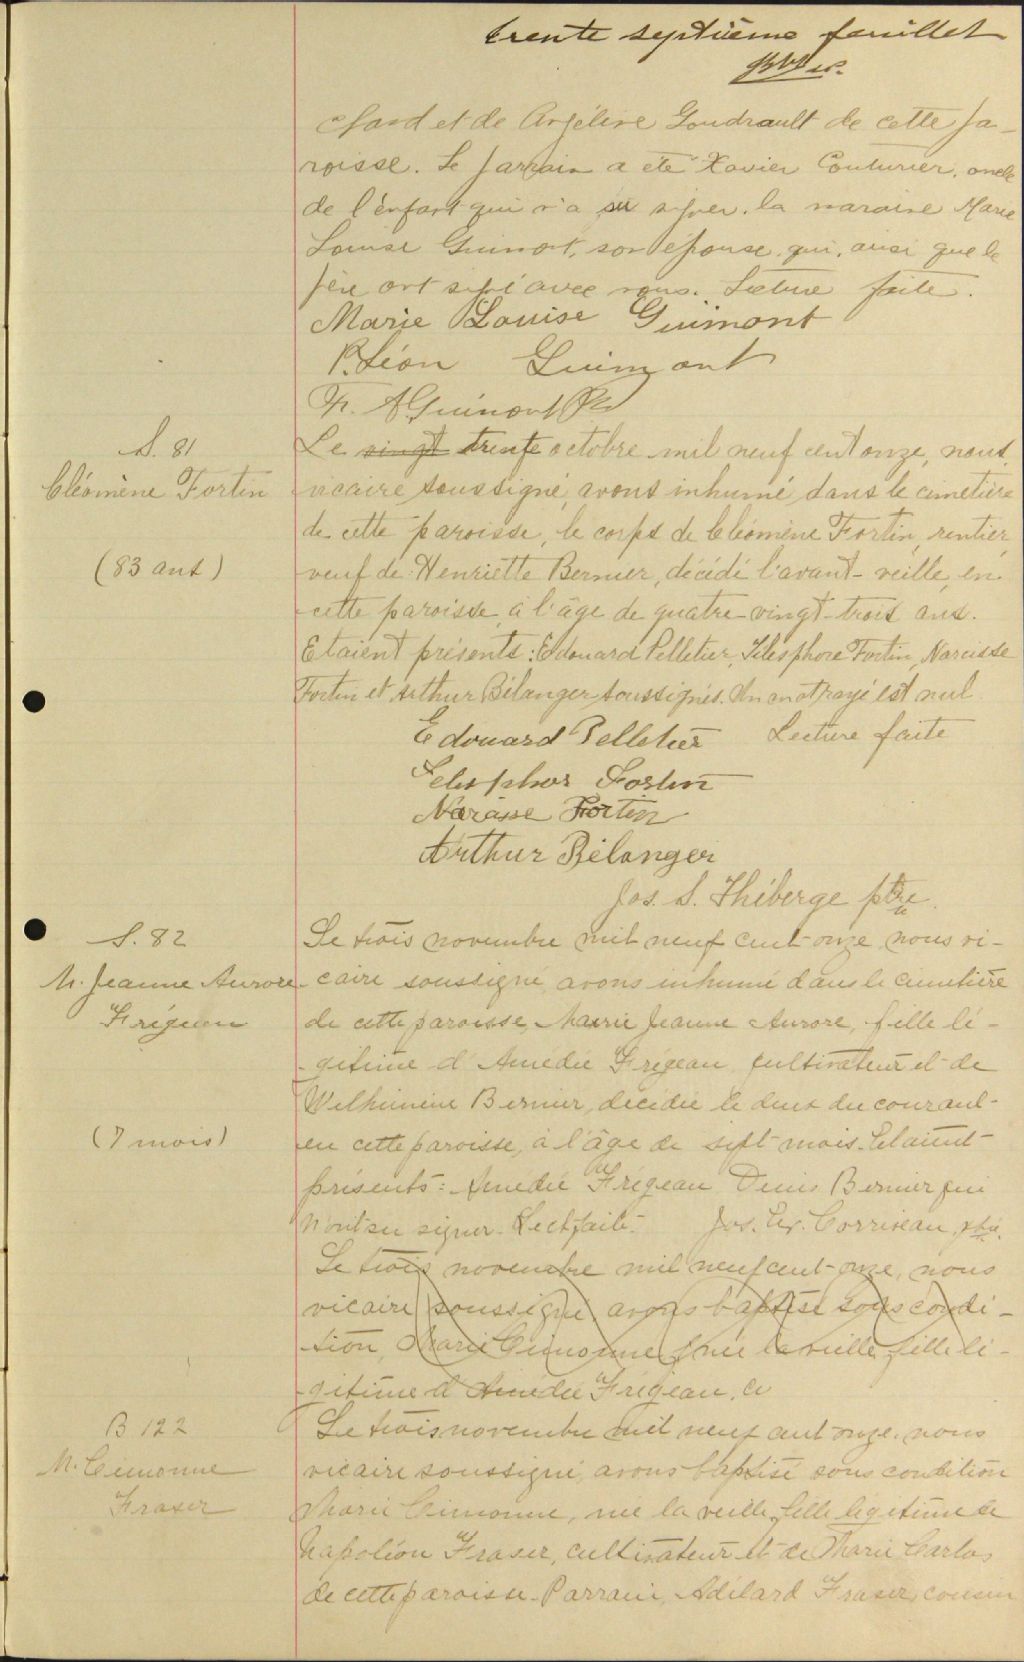 trente septième feuillet
chard et de Angéline Goudrault de cette pa-
roisse. Le parrain a été Xavier Couturier, oncle
de l'enfant qui n'a su signer. la maraine Marie
Louise Guimont, son épouse qui, ainsi que le
père ont signé avec nous. Lecture faite.
Marie Louise Guimont
P. Léon Guimont
Fr. A Guimont Ptr
S. 81
Cléomène Fortin
(83 ans)
Le vingt trente octobre mil neuf cent onze, nous
vicaire soussigné, avons inhumé dans le cimetière
de cette paroisse, le corps de Cléomène Fortin, rentier,
veuf de Henriette Bernier, décédé l'avant-veille, en
cette paroisse, à l'âge de quatre-vingt-trois ans.
Etaient présents: Edouard Pelletier, Télesphore Fortin, Narcisse
Fortin et Arthur Bélanger soussignés. Un mot rayé est nul.
Lecture faite
Edouard Pelletier
Telesphor Fortin
Narcisse Fortin
Arthur Bélanger
Jos. S. Théberge ptre.
S. 82
M. Jeanne Aurore
Frégeau
(7 mois)
Le trois novembre mil neuf cent onze nous vi-
caire soussigné avons inhumé dans le cimetière
de cette paroisse, Marie Jeanne Aurore, fille lé-
gitime d'Amédée Frégeau cultivateur et de
Welhimine Bernier, décédée le deux du courant
en cette paroisse, à l'âge de sept mois. Etaient
présents: Amédée Frégeau Denis Bernier qui
n'ont su signer. Lect faite. Jos. Ex. Corriveau, ptre.
Le trois novembre mil neuf cent onze, nous
vicaire soussigné, avons baptisé sous condi-
tion, Marie Cimonne, née la veille, fille lé-
gitime d'Amédée Frégeau, c
B 122
M. Cimonne
Fraser
Le trois novembre mil neuf cent onze, nous
vicaire soussigné, avons baptisé sous condition
Marie Cimonne, née la veille, fille légitime de
Napoléon Fraser, cultivateur et de Marie Carlos
de cette paroisse. Parrain, Adélard Fraser, cousin